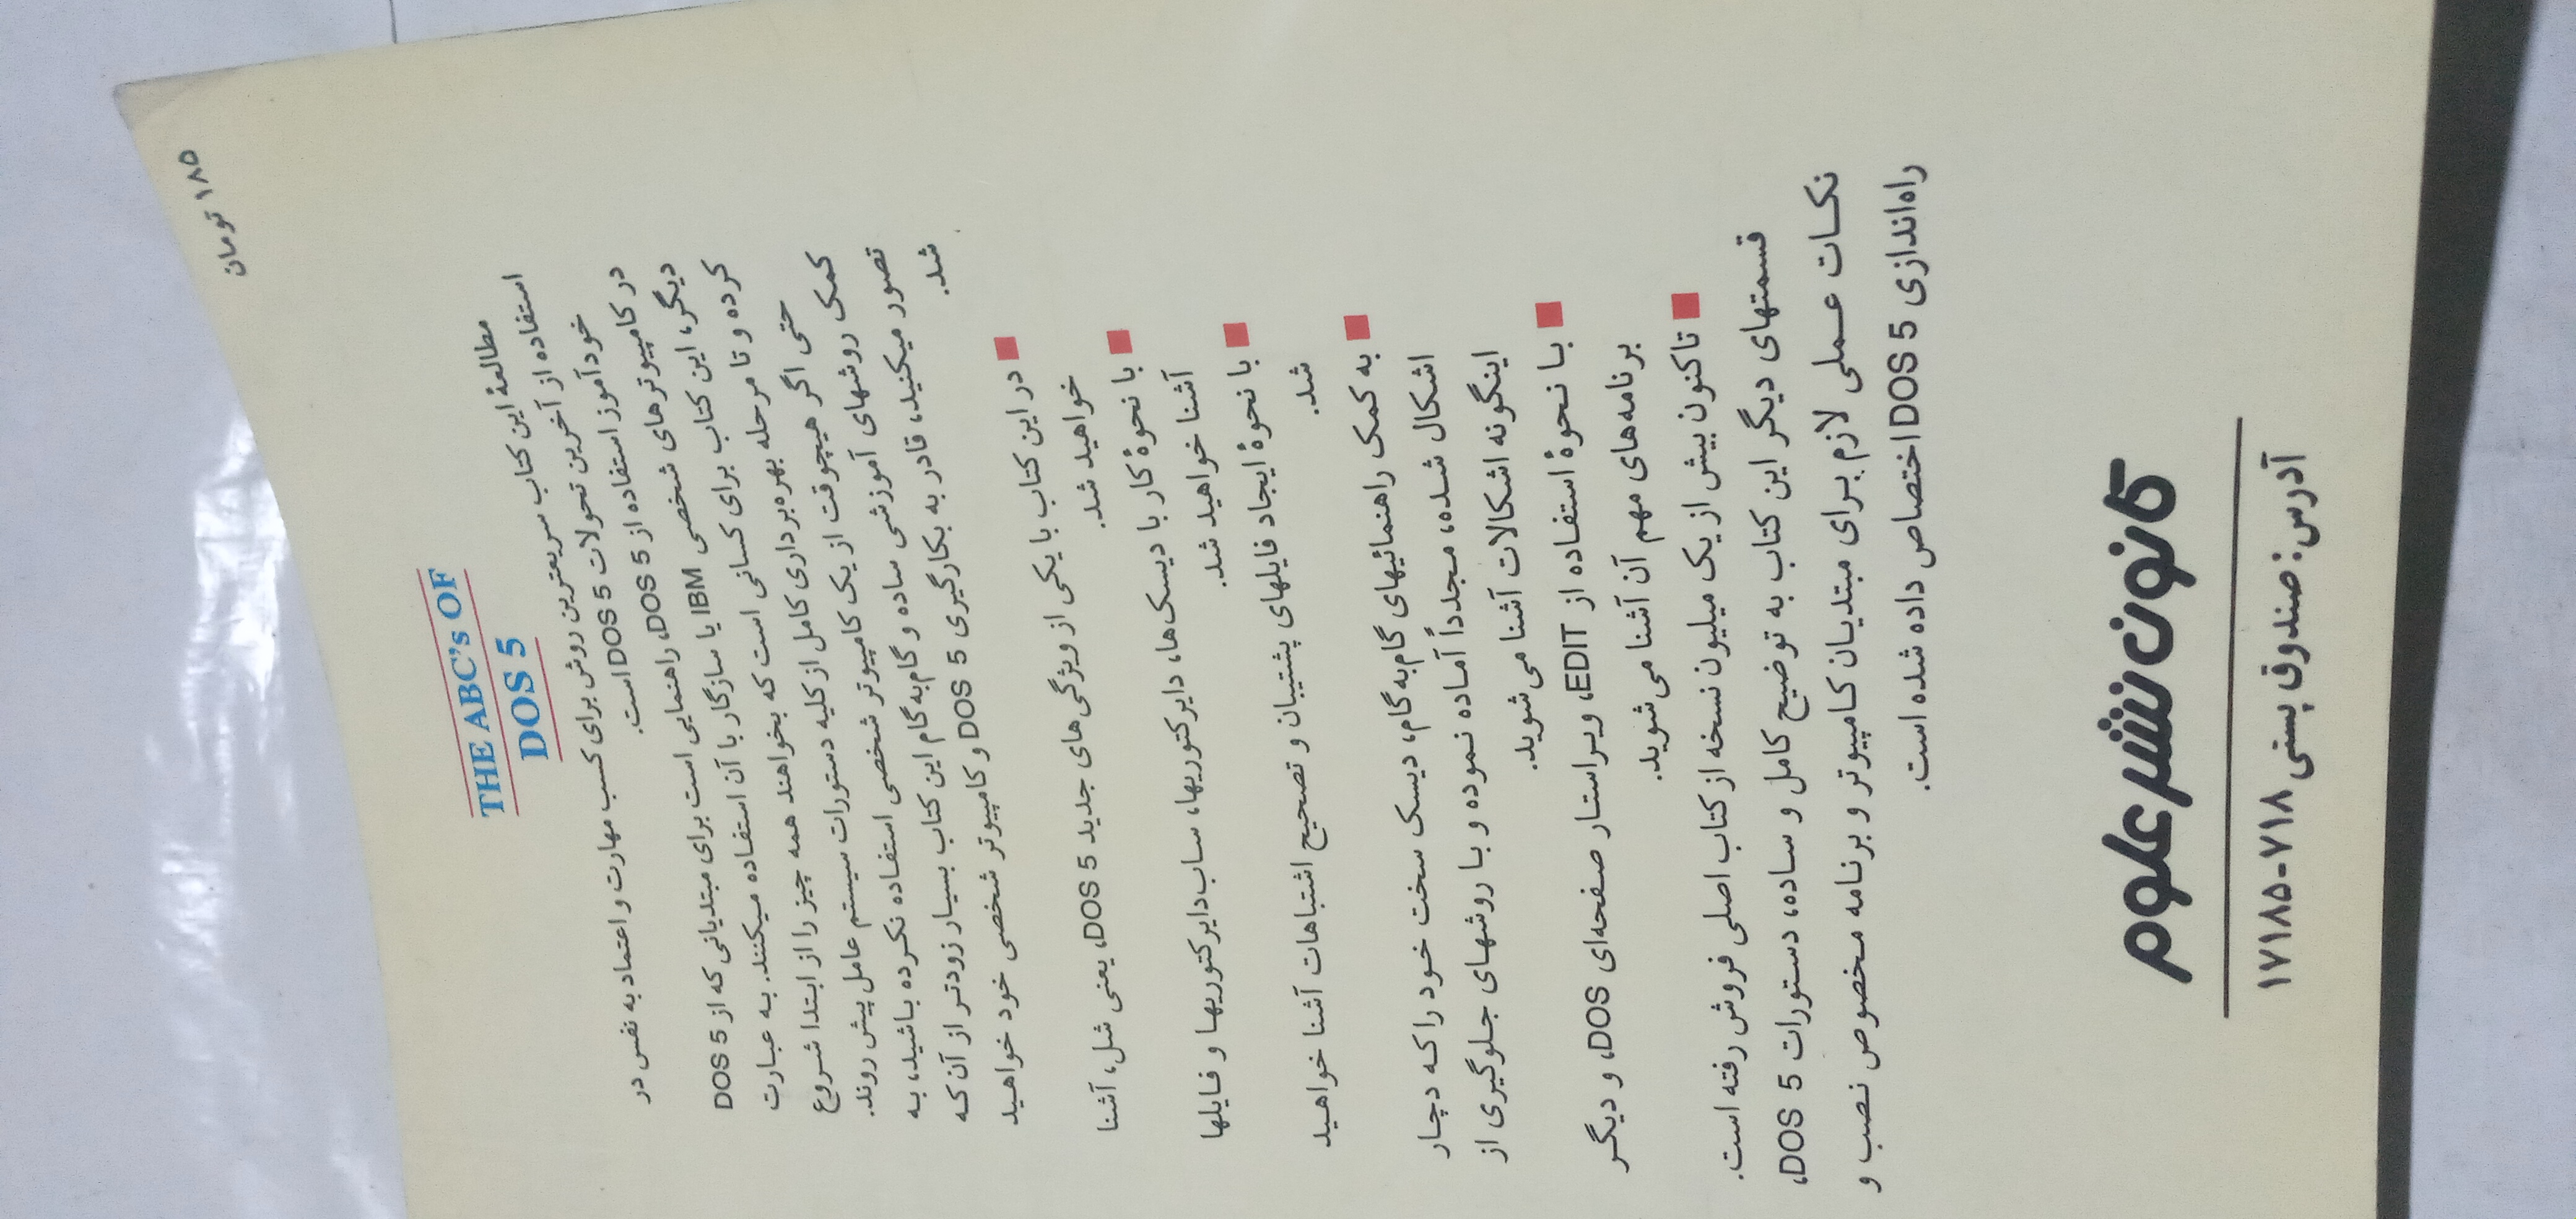 ۱۸۵ تومان
THE ABC's OF
DOS 5
مطالعهٔ این کتاب سریعترین روش برای کسب مهارت و اعتماد به نفس در
استفاده از آخرین تحولات DOS 5 است.
خودآموز استفاده از DOS 5، راهنمایی است برای مبتدیانی که از DOS 5
در کامپیوترهای شخصی IBM یا سازگار با آن استفاده میکنند. به عبارت
دیگر، این کتاب برای کسانی است که بخواهند همه چیز را از ابتدا شروع
کرده و تا مرحله بهره‌برداری کامل از کلیه دستورات سیستم عامل پیش روند.
حتی اگر هیچوقت از یک کامپیوتر شخصی استفاده نکرده باشید، به
کمک روشهای آموزشی ساده و گام‌به‌گام این کتاب بسیار زودتر از آن که
تصور میکنید، قادر به بکارگیری DOS 5 و کامپیوتر شخصی خود خواهید
شد.
■ در این کتاب با یکی از ویژگی‌های جدید DOS 5، یعنی شل، آشنا
خواهید شد.
■ با نحوهٔ کار با دیسک‌ها، دایرکتوریها، ساب‌دایرکتوریها و فایلها
آشنا خواهید شد.
■ با نحوهٔ ایجاد فایلهای پشتیبان و تصحیح اشتباهات آشنا خواهید
شد.
■ به کمک راهنمائیهای گام‌به‌گام، دیسک سخت خود را که دچار
اشکال شده، مجدداً آماده نموده و با روشهای جلوگیری از
اینگونه اشکالات آشنا می‌شوید.
■ با نحوهٔ استفاده از EDIT، ویراستار صفحه‌ای DOS، و دیگر
برنامه‌های مهم آن آشنا می‌شوید.
■ تاکنون بیش از یک میلیون نسخه از کتاب اصلی فروش رفته است.
قسمتهای دیگر این کتاب به توضیح کامل و ساده، دستورات DOS 5،
نکات عملی لازم برای مبتدیان کامپیوتر و برنامه مخصوص نصب و
راه‌اندازی DOS 5 اختصاص داده شده است.
کانون نشر علوم
آدرس: صندوق پستی ۷۱۸-۱۷۱۸۵